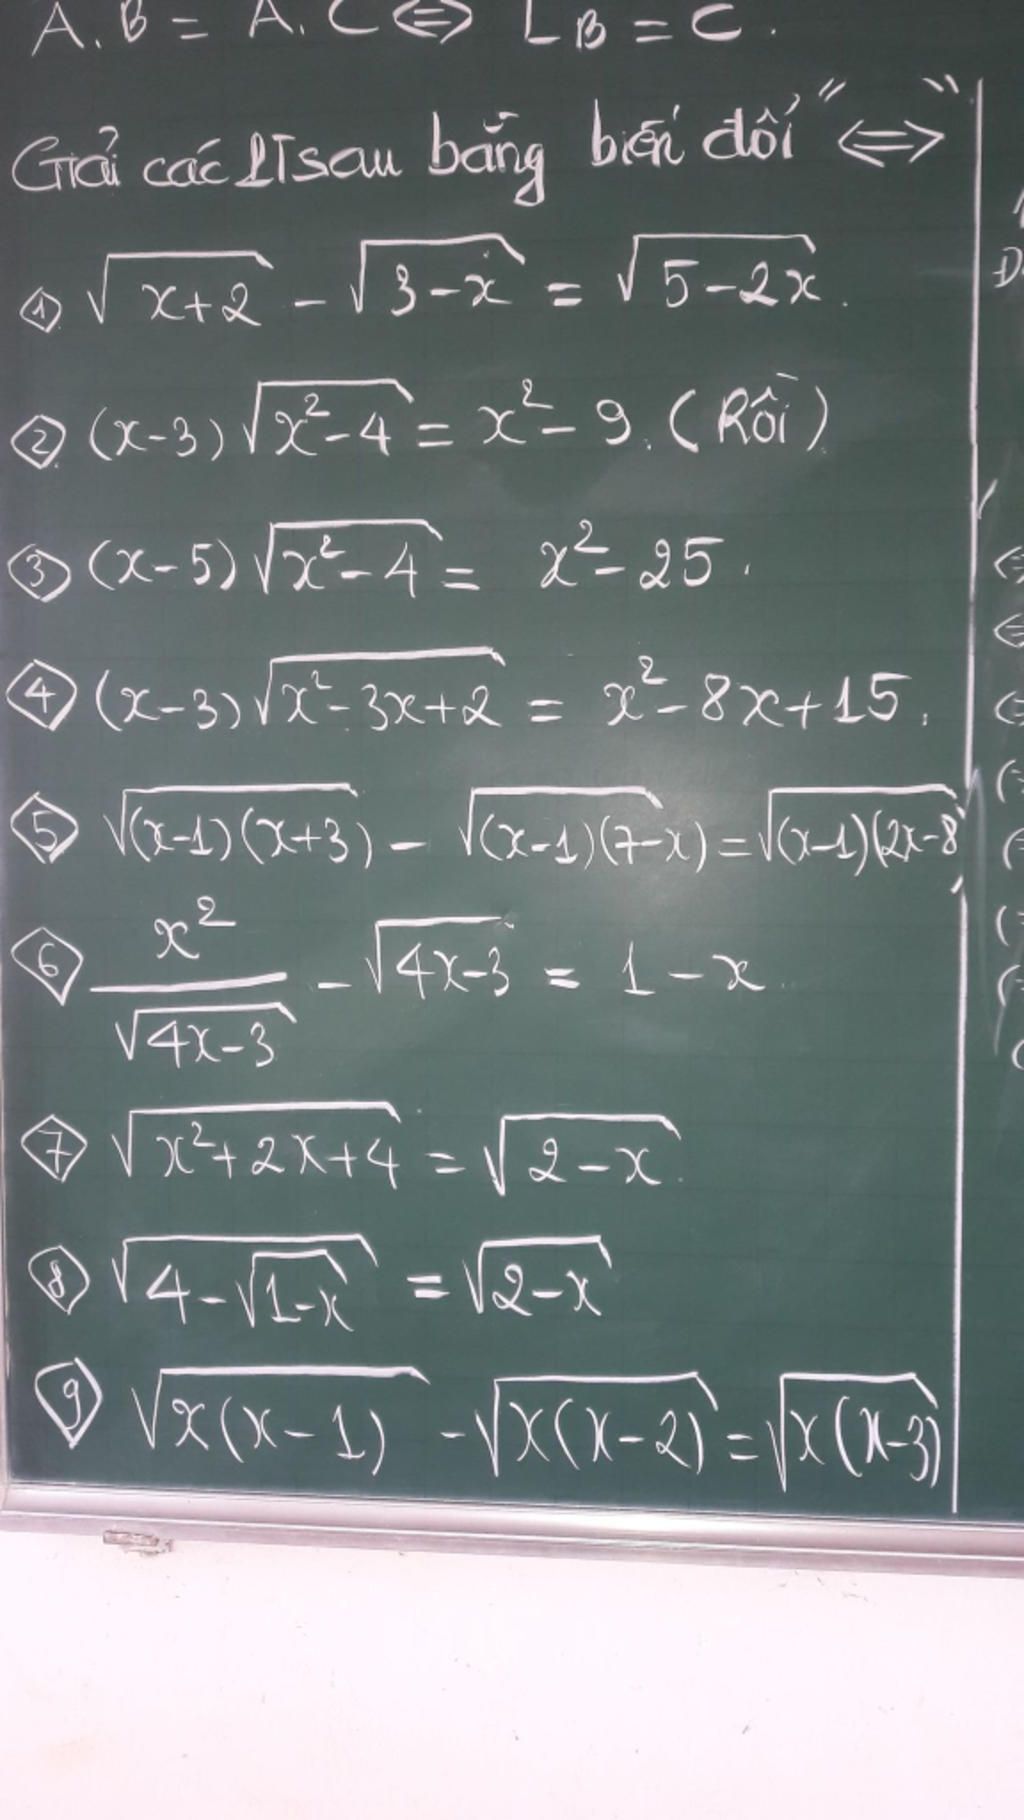 A.B = A.C ⇔ [ B = C.
Giải các PT sau bằng biến đổi "⇔"
① √(x+2) - √(3-x) = √(5-2x).
② (x-3)√(x²-4) = x²-9. (Rồi)
③ (x-5)√(x²-4) = x²-25.
④ (x-3)√(x²-3x+2) = x²-8x+15.
⑤ √((x-1)(x+3)) - √((x-1)(7-x)) = √((x-1)(2x-8)
⑥ x²/√(4x-3) - √(4x-3) = 1-x.
⑦ √(x²+2x+4) = √(2-x).
⑧ √(4-√(1-x)) = √(2-x)
⑨ √(x(x-1)) - √(x(x-2)) = √(x(x-3))